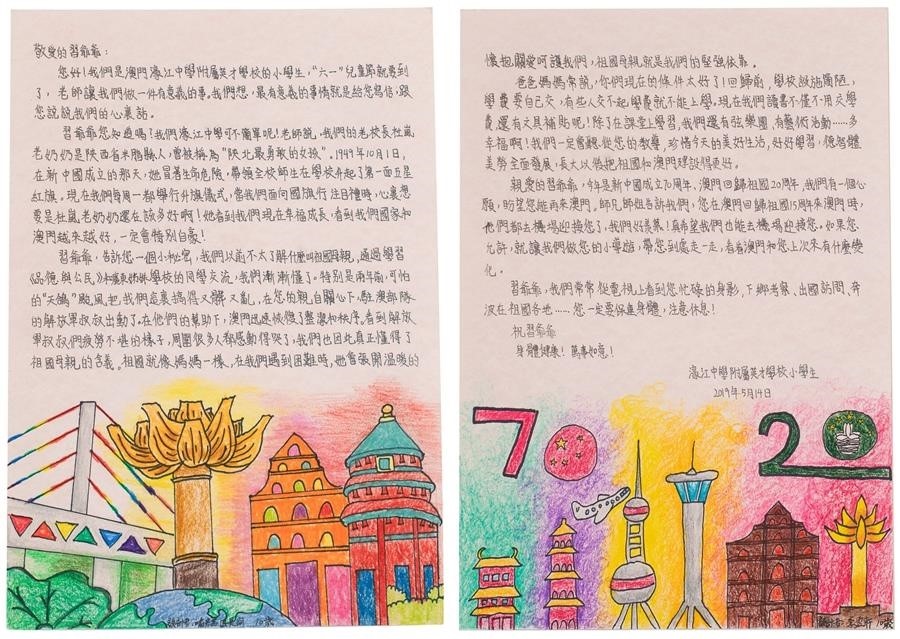 敬愛的習爺爺：
您好！我們是澳門濠江中學附屬英才學校的小學生，“六一”兒童節就要到
了，老師讓我們做一件有意義的事。我們想，最有意義的事情就是給您寫信，跟
您說說我們的心裏話。
習爺爺您知道嗎！我們濠江中學可不簡單呢！老師說，我們的老校長杜嵐
老奶奶是陝西省米脂縣人，曾被稱為“陝北最勇敢的女孩”。1949年10月1日，
在新中國成立的那天，她冒著生命危險，帶領全校師生在學校升起了第一面五星
紅旗。現在我們每周一都舉行升旗儀式，當我們面向國旗行注目禮時，心裏想
要是杜嵐老奶奶還在該多好啊！她看到我們現在幸福成長，看到我們國家和
澳門越來越好，一定會特別自豪！
習爺爺，告訴您一個小秘密，我們以前不太了解什麼叫祖國母親，通過學習
《品德與公民》和 學校的同學交流，我們漸漸懂了。特別是兩年前，可怕
的“天鴿”颱風把我們這裏搞得又髒又亂，在您的親自關心下，駐澳部隊
的解放軍叔叔出動了。在他們的幫助下，澳門迅速恢復了整潔和秩序。看到解放
軍叔叔們疲勞不堪的樣子，周圍很多人都感動得哭了，我們也因此真正懂得了
祖國母親的含義。祖國就像媽媽一樣，在我們遇到困難時，她會張開溫暖的
10歲
懷抱關愛呵護我們，祖國母親就是我們的堅強依靠。
爸爸媽媽常說，你們現在的條件太好了！回歸前，學校設施簡陋，
學費要自己交，有些人交不起學費就不能上學。現在我們讀書不僅不用交學
費還有文具補貼呢！除了在課堂上學習，我們還有弦樂團，有藝術活動……多
幸福啊！我們一定會聽從您的教導，珍惜今天的美好生活，好好學習，德智體
美勞全面發展，長大以後把祖國和澳門建設得更好。
親愛的習爺爺，今年是新中國成立70周年、澳門回歸祖國20周年，我們有一個心
願，盼望您能再來澳門。師兄師姐告訴我們，您在澳門回歸祖國15周年來澳門時，
他們都去機場迎接您了，我們好羨慕！真希望我們也能去機場迎接您。如果您
允許，就讓我們做您的小導遊，帶您到處走一走，看看澳門和您上次來有什麼變
化。
習爺爺，我們常常從電視上看到您忙碌的身影，下鄉考察、出國訪問、奔
波在祖國各地……您一定要保重身體，注意休息！
祝習爺爺
身體健康！萬事如意！
濠江中學附屬英才學校小學生
2019年5月14日
70
20
10歲